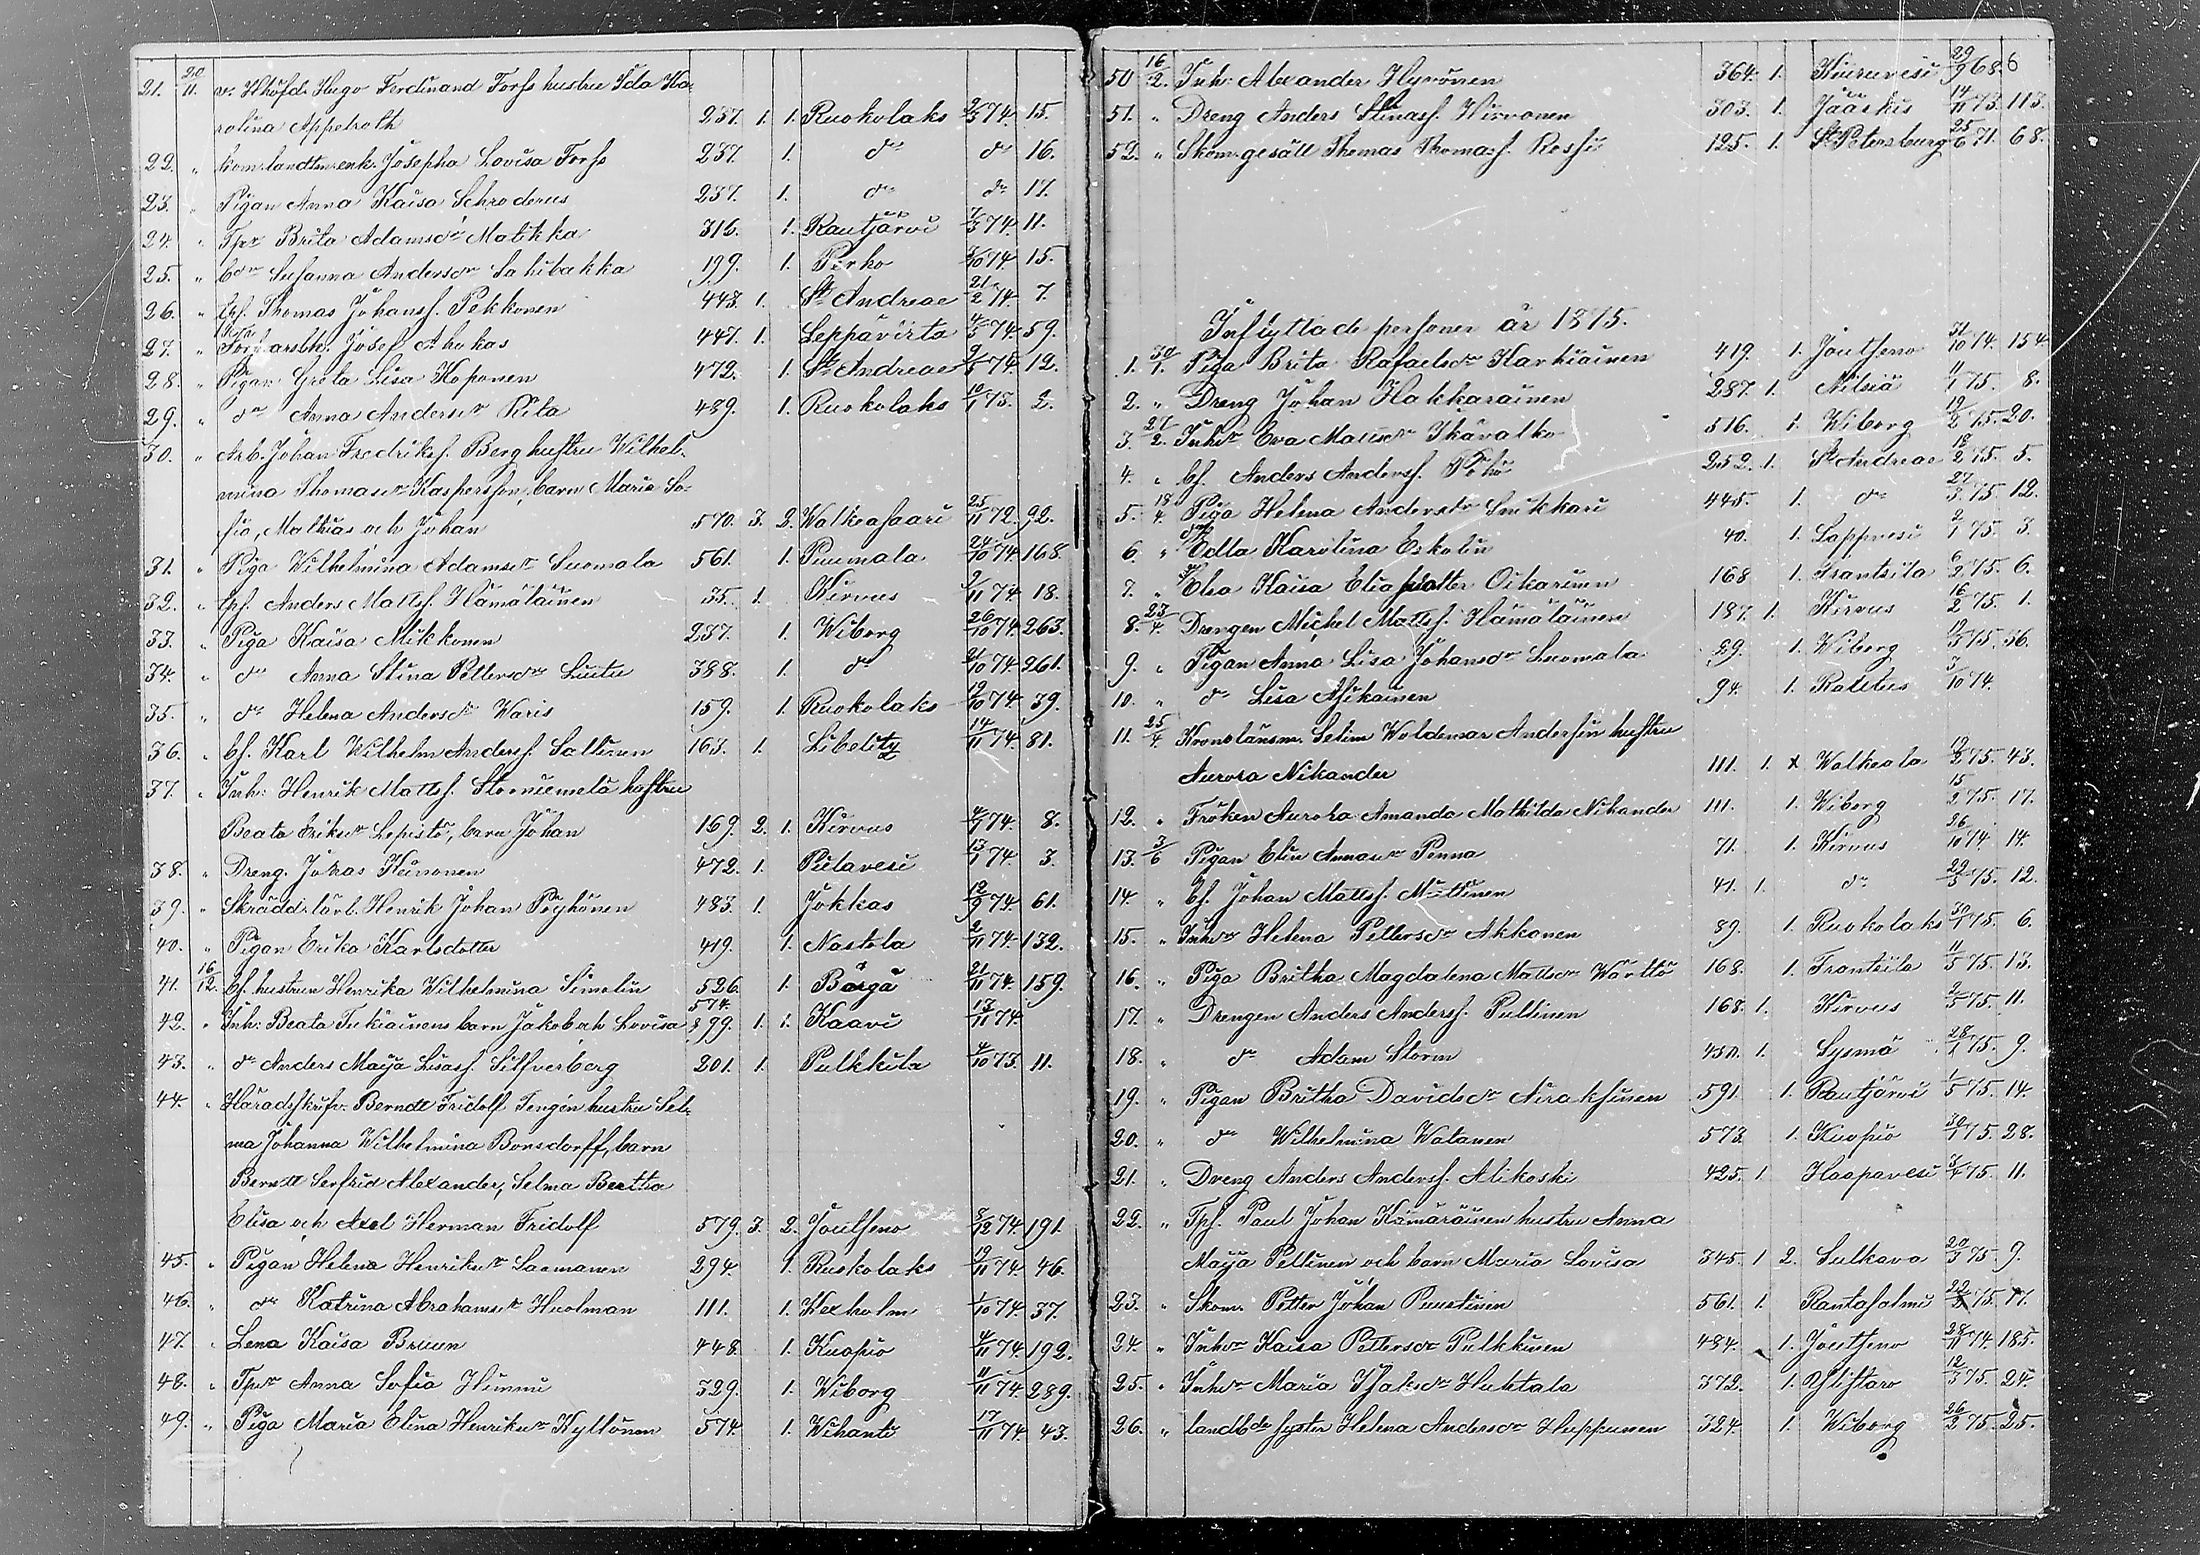 21. 20/11. v. Hhöfd. Hugo Ferdinand Forss hustru Ida Ka-
rolina Appelroth 237. 1. 1. Ruokolaks 2/5 74. 15.
22. " kom.landtm.enk. Josepha Lovisa Forss 237. 1. do do 16.
23. " Pigan Anna Kaisa Schroderus 237. 1. do do 17.
24. " Tpr Brita Adamsdr Matikka 316. 1. Rautjärvi 7/3 74. 11.
25. " bdr Susanna Andersdr Sahibakka 199. 1. Perho 3/10 74. 15.
26. " tpf. Thomas Johansf. Pekkonen 443. 1. St Andreae 21/2 74. 7.
27. " Josef Ahokas 447. 1. Leppävirta 4/5 74. 59.
28. " Pigan Greta Lisa Koponen 472. 1. St Andreae 9/5 74. 12.
29. " do Anna Andersdr Rita 489. 1. Ruokolaks 10/1 75. 2.
30. " Arb. Johan Fredriksf. Berg hustru Wilhel-
mina Thomasdr Kaspersson, barn Maria So-
fia, Mathias och Johan 570. 3. 2. Walkeasaari 25/11 72. 92.
31. " Piga Wilhelmina Adamsdr Suomala 561. 1. Puumala 24/10 74. 168.
32. " tpf. Anders Mattsf. Hämäläinen 35. 1. Kirvus 9/11 74. 18.
33. " Piga Kaisa Mikkonen 237. 1. Wiborg 26/10 74. 263.
34. " do Anna Stina Pettersdr Luutu 388. 1. do 21/10 74. 261.
35. " do Helena Andersdr Waris 159. 1. Ruokolaks 19/10 74. 39.
36. " bf. Karl Wilhelm Andersf. Sallinen 163. 1. Libelitz 14/11 74. 81.
37. " Inh. Henrik Mattsf. Storniemelä hustru
Beata Eriksdr Lepistö, barn Johan 169. 2. 1. Kirvus 4/7 74. 8.
38. " Dreng. Johas Keinonen 472. 1. Pielavesi 13/1 74 3.
39. " Skrädd.lärl. Henrik Johan Pöyhönen 483. 1. Jokkas 12/9 74. 61.
40. " Pigan Erika Karlsdotter 419. 1. Nastola 2/11 74. 132.
41. 16/12. bf. hustrun Henrika Wilhelmina Simolin 526. 1. Borgå 21/11 74. 159.
574.
42. " Inh. Beata Tukiainens barn Jakob och Lovisa 899. 1. 1. Kaavi 13/11 74.
43. " do Anders Maija Lisasf. Silfverberg 201. 1. Pulkkila 4/10 73. 11.
44. " Häradsskrifv. Berndt Fridolf Tengén hustru Sel-
ma Johanna Wilhelmina Bonsdorff, barn
Berndt Serfrid Alexander, Selma Bertha
Elisa och Axel Herman Fridolf 579. 3. 2. Joutseno 8/12 74. 191.
45. " Pigan Helena Henriksdr Saamanen 294. 1. Ruokolaks 19/11 74. 46.
46. " do Katrina Abrahamsdr Huolman 111. 1. Kexholm 1/10 74. 37.
47. " Lena Kaisa Bruun 448. 1. Kuopio 4/11 74. 192.
48. " Tpdr Anna Sofia Himmi 329. 1. Wiborg 11/11 74. 289.
49. " Piga Maria Elina Henriksdr Kyllönen 574. 1. Wihanti 17/11 74. 43.
50 16/12. Inh. Alexander Hyvönen 364. 1. Kiuruvesi 29/9 68. 6
51. " Dreng Anders Stinasf. Hirvonen 303. 1. Jääskis 14/11 73. 113.
52. " Skom.gesäll Thomas Thomasf. Rossi 125. 1. St Petersburg 25/6 71. 68.
Inflyttade personer år 1875.
1. 30/1. Piga Brita Rafaelsdr Karhiainen 419. 1. Joutseno 31/10 74. 154.
2. " Dreng Johan Hakkarainen 287. 1. Nilsiä 11/1 75. 8.
3. 21/2. Inhdr Eva Mattsdr Ikävalko 516. 1. Wiborg 19/2 75. 20.
4. " bf. Anders Andersf. Pöhö 252. 1. St Andreae 18/2 75. 5.
5. 18/4. Piga Helena Andersdr Sinkkari 445. 1. do 27/3 75. 12.
6. " do Edla Karolina Eskolin 40. 1. Lappvesi 2/1 75. 3.
7. " do Elsa Kaisa Eliasdotter Oikarinen 168 1. Frantsila 6/2 75. 6.
8. 23/4. Drengen Michel Mattsf. Hämäläinen 187. 1. Kirvus 16/2 75. 1.
9. " Pigan Anna Lisa Johansdr Suomala 29. 1. Wiborg 19/3 75. 56.
10. " do Lisa Asikainen 94. 1. Rättus 3/10 74.
11. 25/4. Kronolänsm. Selim Woldemar Andersin hustru
Aurora Nikander 111. 1. x Walkeala 19/2 75. 43.
12. " Fröken Aurora Amanda Mathilda Nikander 111. 1. Wiborg 15/2 75. 17.
13. 3/6 Pigan Elin Annasdr Penna 71. 1. Kirvus 26/10 74. 14.
14. " bf. Johan Mattsf. Miettinen 41. 1. do 22/5 75. 12.
15. " Inhdr Helena Pettersdr Akkanen 89. 1. Ruokolaks 30/1 75. 6.
16. " Piga Britha Magdalena Mattsdr Wärttö 168. 1. Frantsila 11/5 75. 13.
17. " Drengen Anders Andersf. Pullinen 168. 1. Kirvus 2/5 75. 11.
18. " do Adam Storm 450. 1. Sysmä 28/1 75. 9.
19. " Pigan Britha Davidsdr Niraksinen 591. 1. Rautjärvi 1/5 75. 14.
20. " do Wilhelmina Watanen 573. 1. Kuopio 30/1 75. 28.
21. " Dreng Anders Andersf. Alikoski 425. 1. Haapavesi 3/4 75. 11.
22. " Tpf. Paul Johan Kämäräinen hustru Anna
Maija Pellinen och barn Maria Lovisa 345. 1 2. Sulkava 20/3 75. 9.
23. " Skom. Petter Johan Puustinen 561. 1. Rantasalmi 22/3 75. 17.
24. " Inhdr Kaisa Pettersdr Pulkkinen 484. 1. Joutseno 28/11 74. 185.
25. " Inhdr Maria Isaksdr Huhtala 372. 1. Ylistaro 12/3 75. 24.
26. " landbde syster Helena Andersdr Huppunen 324. 1. Wiborg 26/2 75. 25.